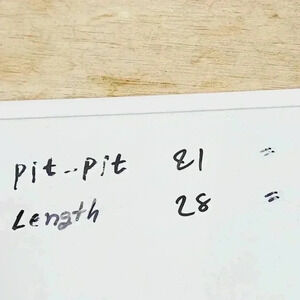 pit--pit 21 "
Length 28 "